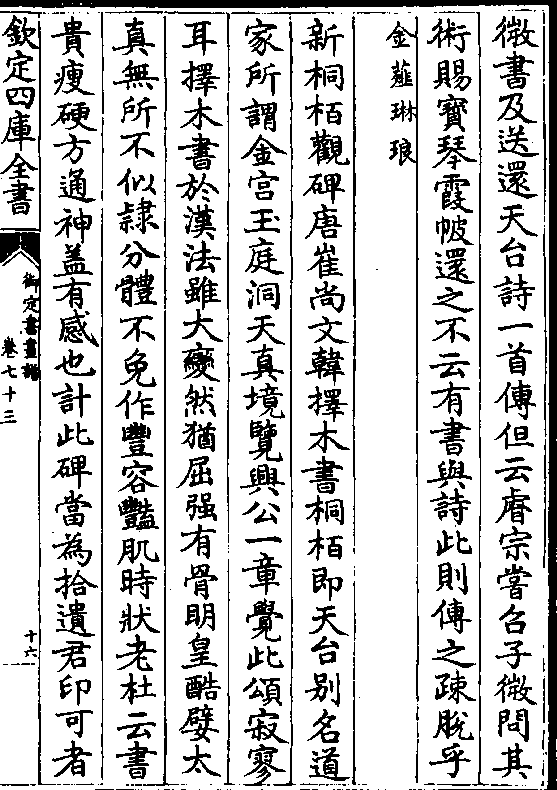 㣲書及送還天台詩一首傳但云睿宗嘗召子㣲問其
術賜寳琴霞帔還之不云有書與詩此則傳之疎脫乎
金薤琳琅
新桐栢觀碑唐崔尚文韓擇木書桐栢即天台别名道
家所謂金宫玉庭洞天真境覽興公一章覺此頌寂寥
耳擇木書於漢法雖大變然猶屈强有骨明皇酷嬖太
真無所不似𨽻分體不免作豐容豔肌時狀老杜云書
貴瘦硬方通神盖有感也計此碑當為拾遺君印可者
欽定四庫全書
御定書畫譜
卷七十三
十六